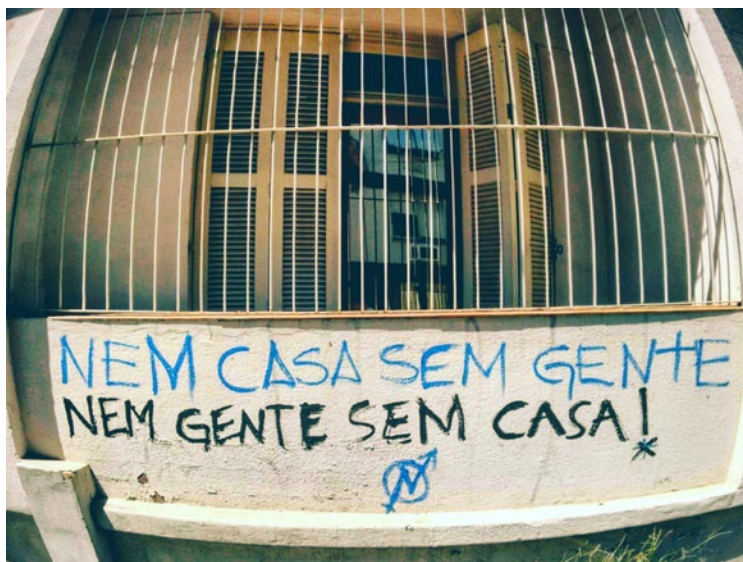 NEM CASA SEM GENTE
NEM GENTE SEM CASA!